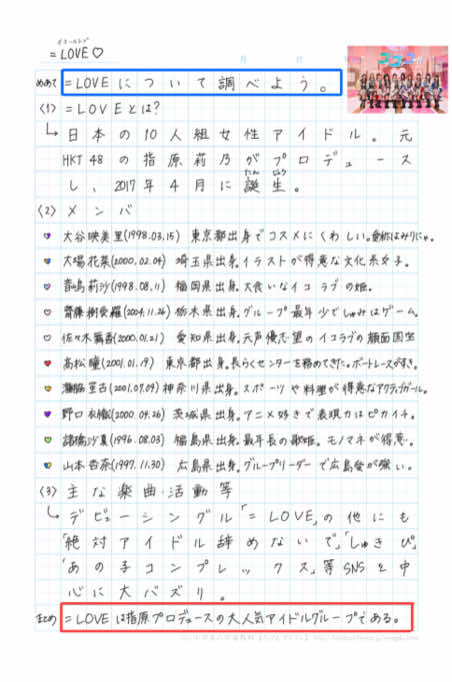 イコールラブ
=LOVE♡
めあて =LOVEについて調べよう。
〈1〉=LOVEとは?
↳日本の10人組女性アイドル。元
HKT48の指原莉乃がプロデュース
し、2017年4月に誕生。
たん じょう
〈2〉メンバ
大谷映美里(1998.03.15) 東京都出身でコスメにくわしい。愛称はみりにゃ。
大場花菜(2000.02.04) 埼玉県出身。イラストが得意な文化系女子。
音嶋莉沙(1998.08.11) 福岡県出身。大食いなイコラブの姫。
齋藤樹愛羅(2004.11.26) 栃木県出身。グループ最年少でしゅみはゲーム。
佐々木舞香(2000.01.21) 愛知県出身。元声優志望のイコラブの顔面国宝
高松瞳(2001.01.19) 東京都出身。長らくセンターを務めてきた。ボートレースがすき。
瀧脇笙古(2001.07.09) 神奈川県出身。スポーツや料理が得意なアクティブガール。
野口衣織(2000.04.26) 茨城県出身。アニメ好きで表現力はピカイチ。
諸橋沙夏(1996.08.03) 福島県出身。最年長の歌姫。モノマネが得意。
山本杏奈(1997.11.30) 広島県出身。グループリーダーで広島愛が強い。
〈3〉主な楽曲・活動等
↳デビューシングル「=LOVE」の他にも
「絶対アイドル辞めないで」「しゅきぴ」
「あの子コンプレックス」等SNSを中
心に大バズり。
まとめ =LOVEは指原プロデュースの大人気アイドルグループである。